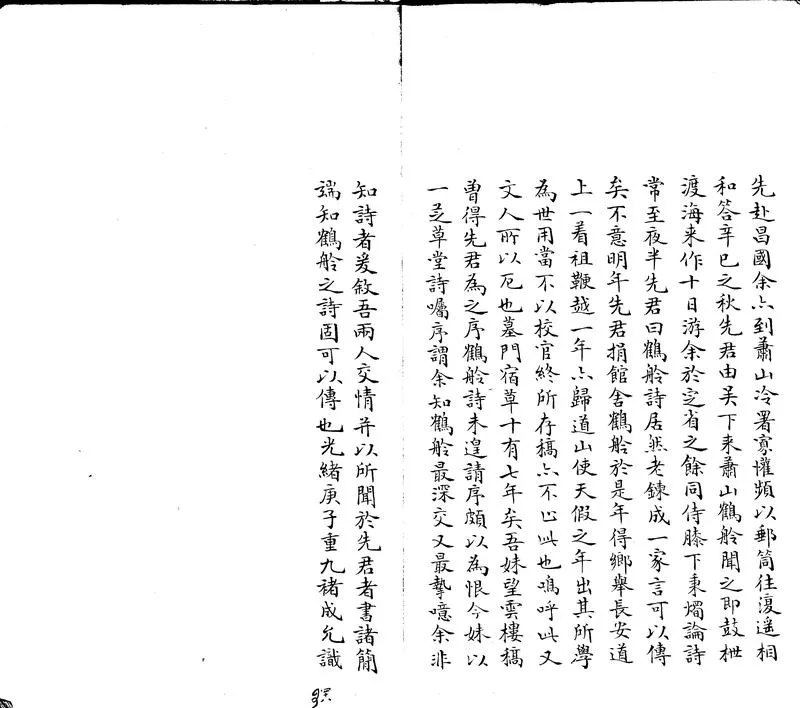 先赴昌國余亦到蕭山冷署寡懽頻以郵筒往復遥相
和答辛巳之秋先君由吴下来蕭山鶴舲聞之即鼓枻
渡海来作十日游余於定省之餘同侍膝下秉燭論詩
常至夜半先君曰鶴舲詩居然老鍊成一家言可以傳
矣不意明年先君捐館舍鶴舲於是年得鄉舉長安道
上一着祖鞭越一年亦歸道山使天假之年出其所學
為世用當不以校官終所存稿亦不止此也嗚呼此又
文人所以厄也墓門宿草十有七年矣吾妹望雲樓稿
曾得先君為之序鶴舲詩未遑請序頗以為恨今妹以
一芝草堂詩囑序謂余知鶴舲最深交又最摯噫余非
知詩者爰敘吾兩人交情并以所聞於先君者書諸簡
端知鶴舲之詩固可以傳也光緒庚子重九褚成允識